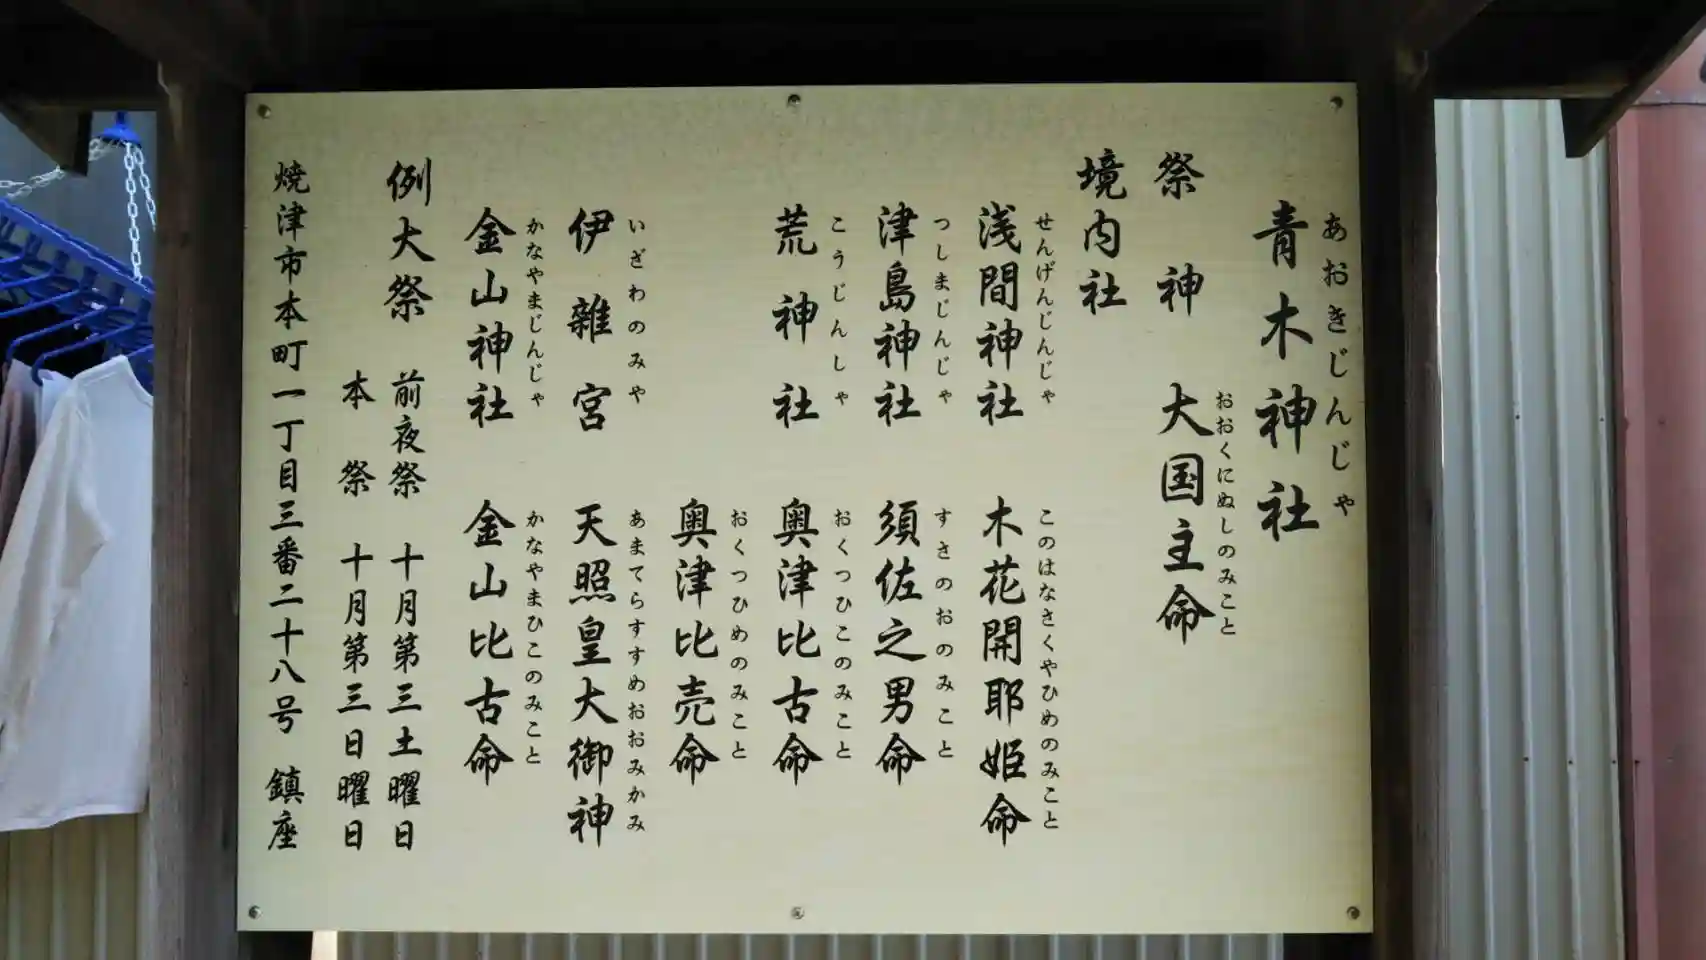 あおきじんじゃ
青木神社
おおくにぬしのみこと
祭神 大国主命
境内社
せんげんじんじゃ このはなさくやひめのみこと
浅間神社 木花開耶姫命
つしまじんじゃ すさのおのみこと
津島神社 須佐之男命
こうじんしゃ おくつひこのみこと
荒神社 奥津比古命
おくつひめのみこと
奥津比売命
いざわのみや あまてらすすめおおみかみ
伊雜宮 天照皇大御神
かなやまじんじゃ かなやまひこのみこと
金山神社 金山比古命
例大祭 前夜祭 十月第三土曜日
本祭 十月第三日曜日
焼津市本町一丁目三番二十八号 鎮座